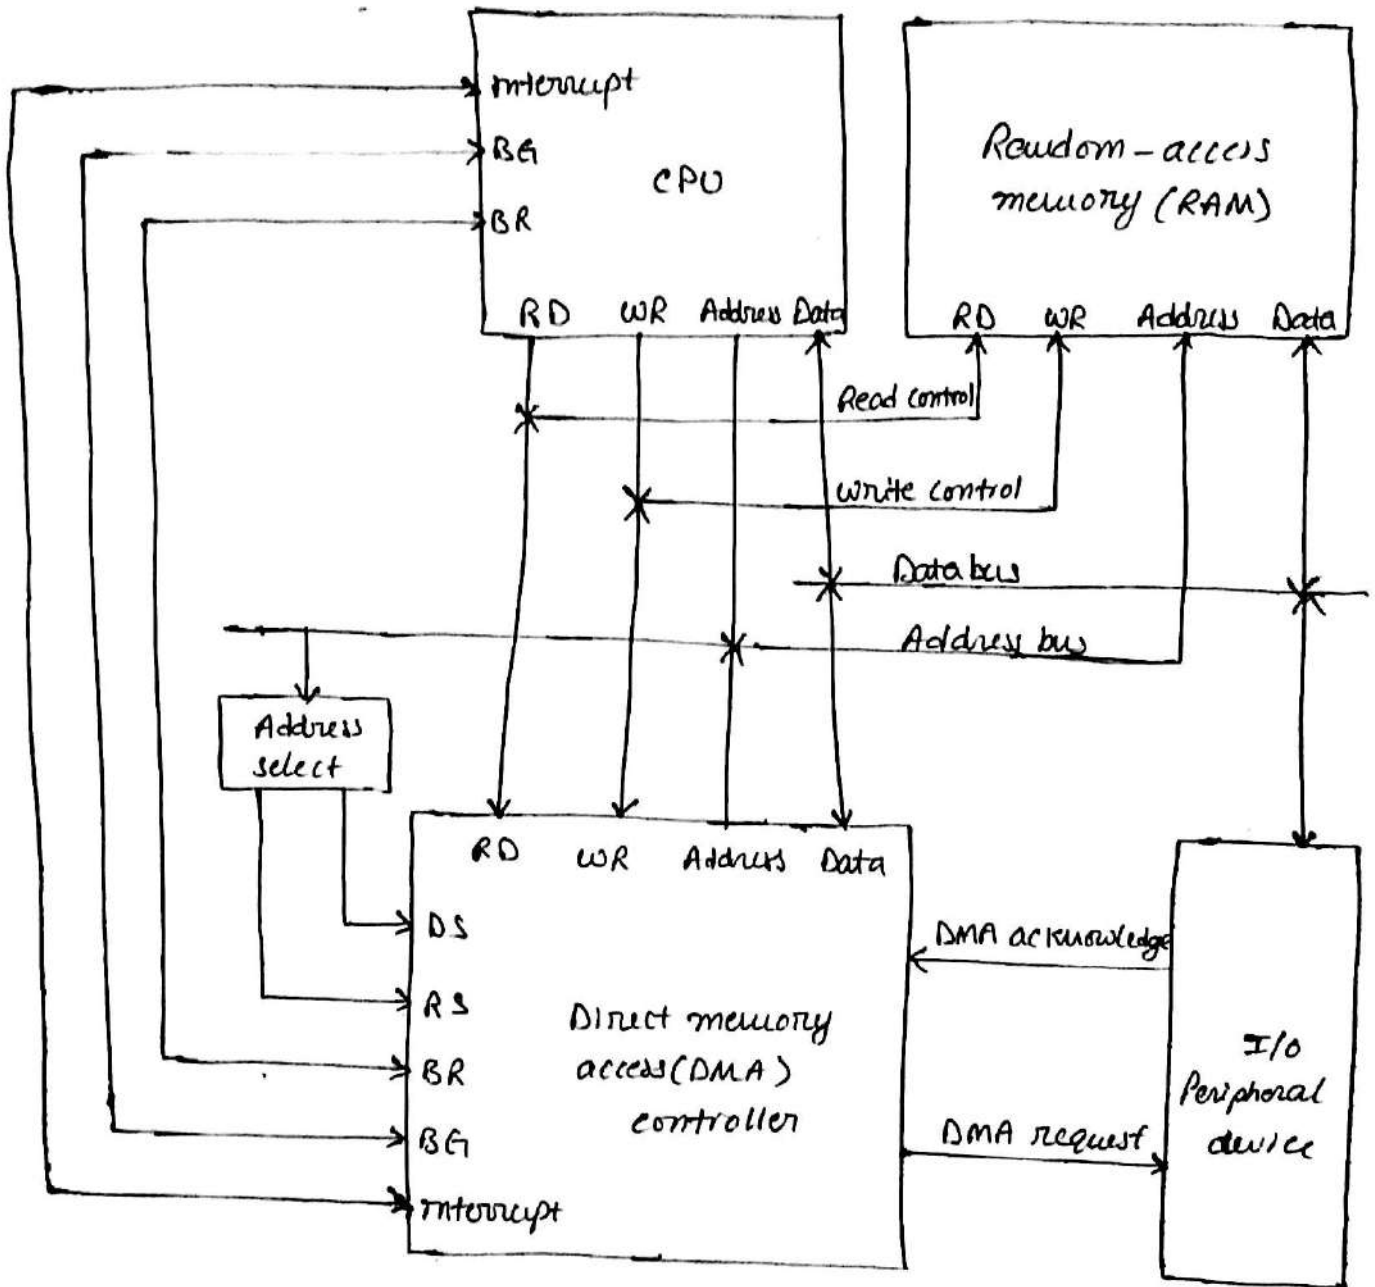 Interrupt
BG
CPU
BR
RD WR Address Data
Random-access
memory (RAM)
RD WR Address Data
Read control
Write control
Data bus
Address bus
Address
select
RD WR Address Data
DS
RS
BR
BG
Interrupt
Direct memory
access(DMA)
controller
DMA acknowledge
DMA request
I/O
Peripheral
device